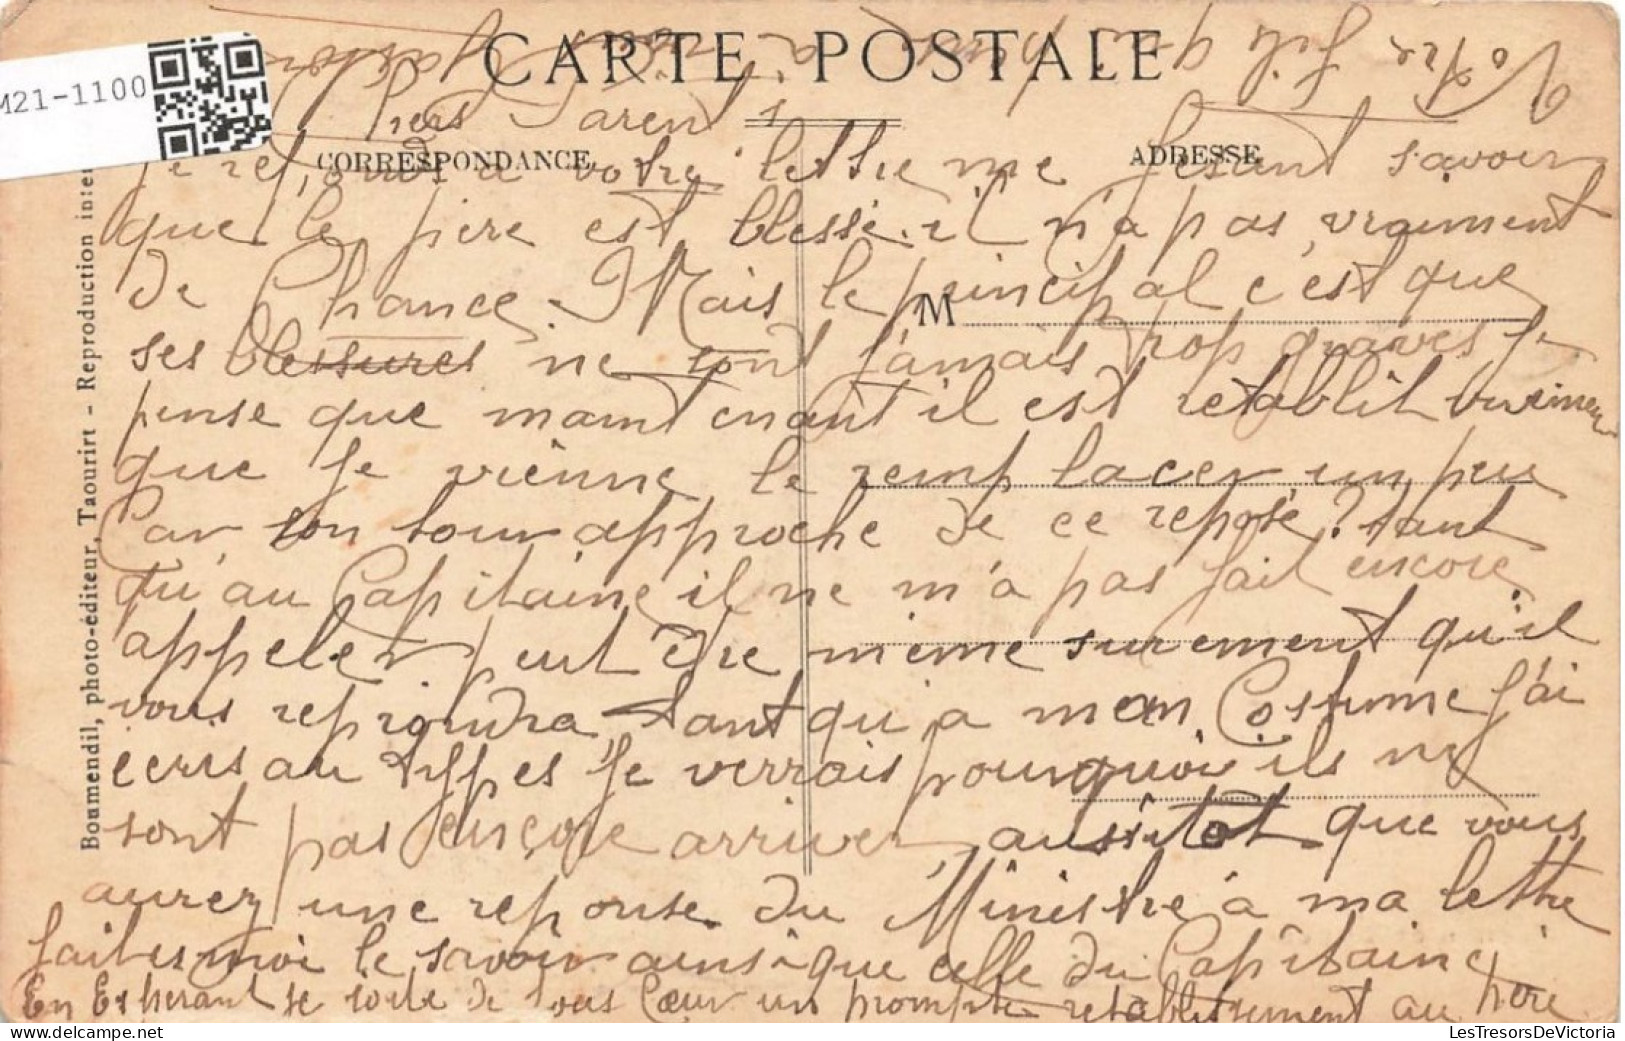 Votre fils qui pense à vous Gaston
CARTE POSTALE
M21-1100
Chers Parents
CORRESPONDANCE
ADRESSE
Je reponds a votre lettre me fesant savoir
que le père est blessé. il n'a pas vraiment
de Chance. Mais le principal c'est que
M
ses blessures ne sont jamais trop graves je
pense que maintenant il est retablit
que je vienne le remplacer un peu
Car son tour approche de ce repose? tant
qu'au Capitaine il ne m'a pas fait encore
appeler peut être même surement qu'il
vous repondra tant qu'a mon Costume j'ai
ecris au Types je verrais pourquoi ils ne
sont pas ençore arriver aussitôt que vous
aurez une reponse du Ministre à ma lettre
faites moi le savoir ainsi que celle du Capitaine
En Esperant de tous Cœur un prompte retablissement au père
Boumendil, photo-éditeur, Taourirt - Reproduction inter
LesTresorsDeVictoria